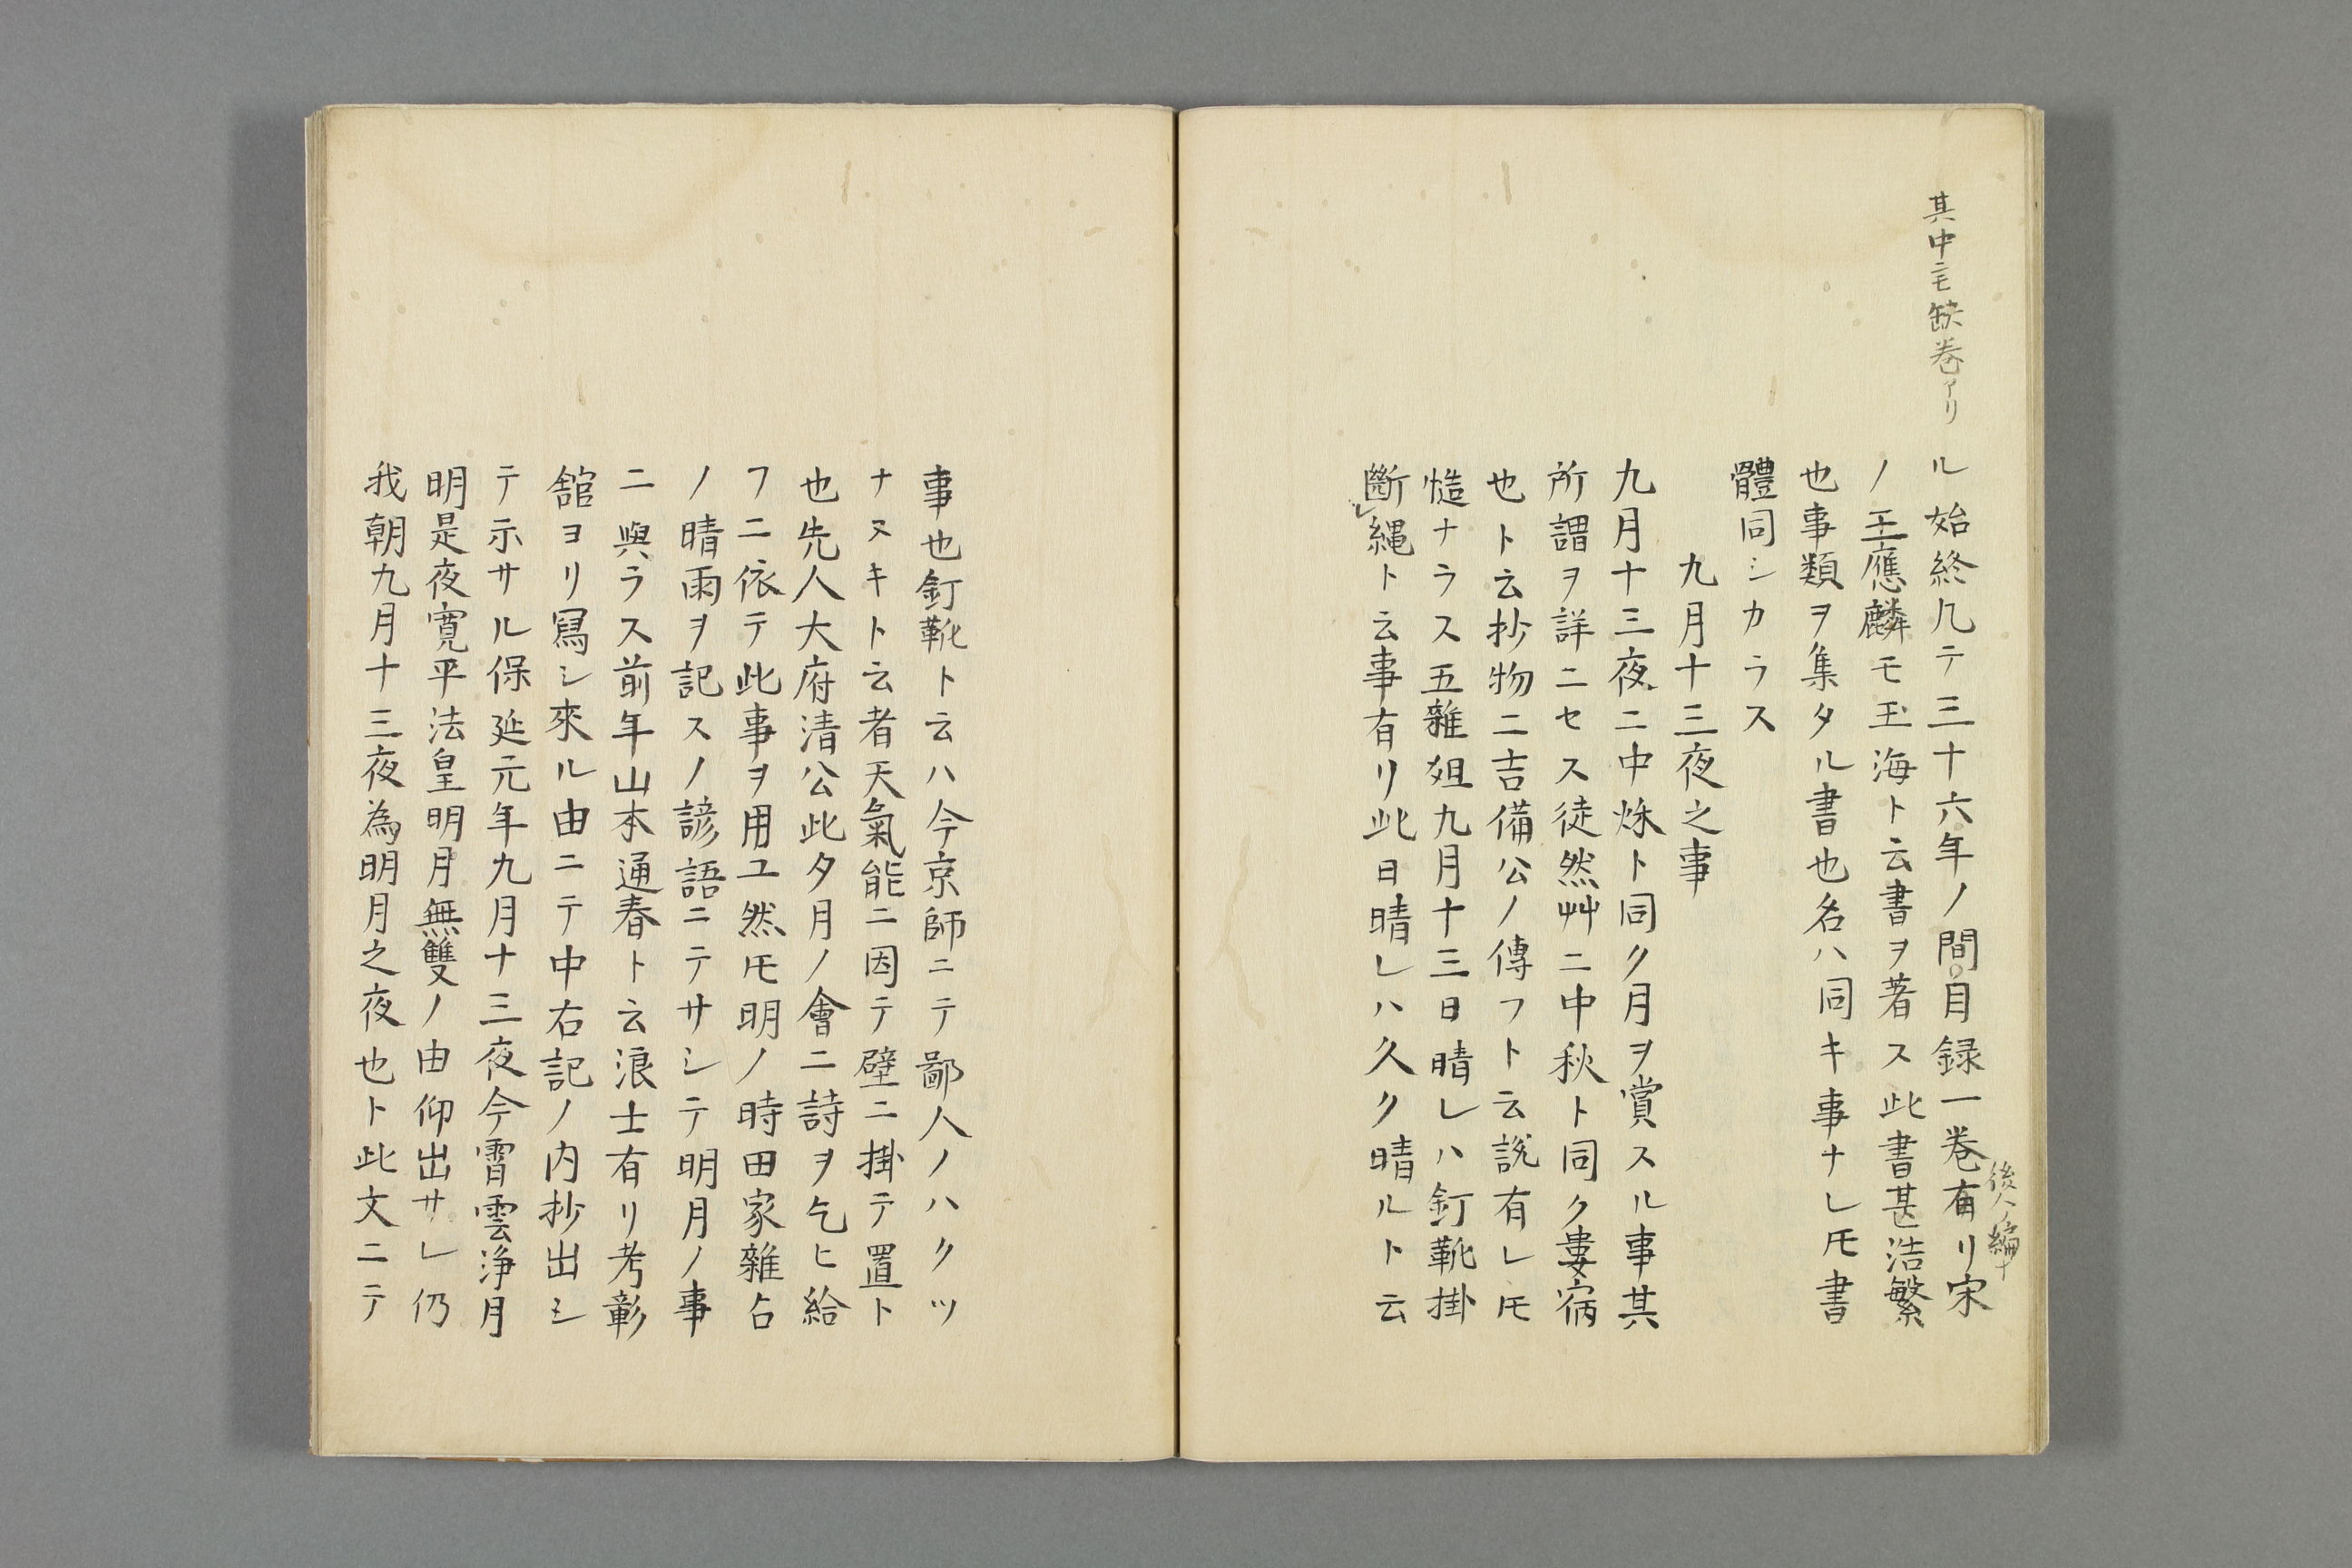 其中ニモ缺卷アリ
ル始終凡テ三十六年ノ間目録一卷有リ宋
後人ノ編
ノ王應麟モ玉海ト云書ヲ著ス此書甚浩繁
也事類ヲ集タル書也名ハ同キ事ナレ𪜈書
體同シカラス
九月十三夜之事
九月十三夜ニ中烁ト同ク月ヲ賞スル事其
所謂ヲ詳ニセス徒然艸ニ中秋ト同ク婁宿
也ト云抄物ニ吉備公ノ傳フト云説有レ𪜈
慥ナラス五雜俎九月十三日晴レハ釘靴掛
斷縄ト云事有リ此日晴レハ久ク晴ルト云
事也釘靴ト云ハ今京師ニテ鄙人ノハクツ
ナヌキト云者天氣能ニ因テ壁ニ掛テ置ト
也先人大府清公此夕月ノ會ニ詩ヲ乞ヒ給
フニ依テ此事ヲ用ユ然𪜈明ノ時田家雜占
ノ晴雨ヲ記スノ諺語ニテサシテ明月ノ事
ニ與ラス前年山本通春ト云浪士有リ考彰
舘ヨリ冩シ來ル由ニテ中右記ノ内抄出シ
テ示サル保延元年九月十三夜今霄雲浄月
明是夜寛平法皇明月無雙ノ由仰出サレ仍
我朝九月十三夜為明月之夜也ト此文ニテ